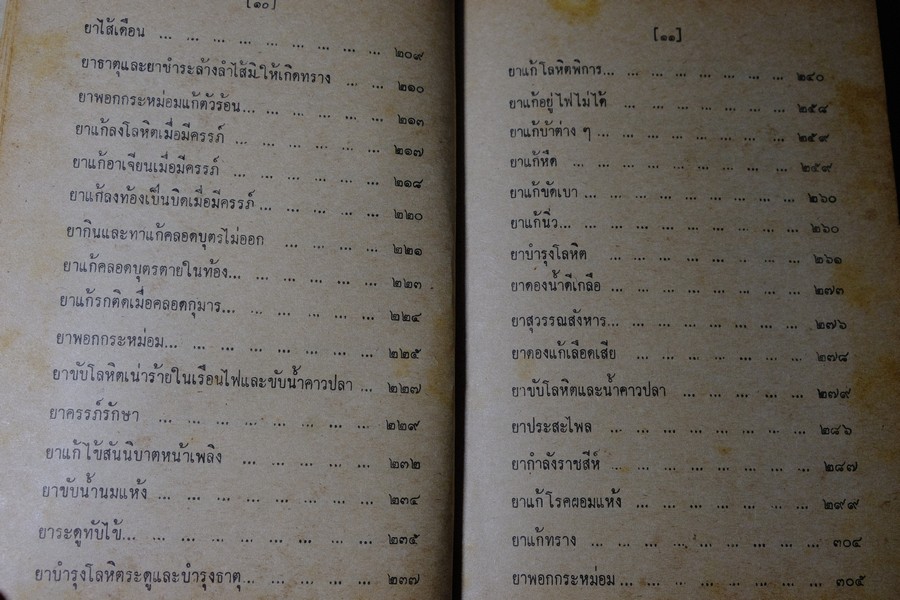 [๑๐]
ยาไส้เดือน ... ๒๐๙
ยาธาตุและยาชำระล้างลำไส้มิให้เกิดทราง ... ๒๑๐
ยาพอกกระหม่อมแก้ตัวร้อน ... ๒๑๓
ยาแก้ลงโลหิตเมื่อมีครรภ์ ... ๒๑๗
ยาแก้อาเจียนเมื่อมีครรภ์ ... ๒๑๘
ยาแก้ลงท้องเป็นบิดเมื่อมีครรภ์ ... ๒๒๐
ยากินและทาแก้คลอดบุตรไม่ออก ... ๒๒๑
ยาแก้คลอดบุตรตายในท้อง ... ๒๒๓
ยาแก้รกติดเมื่อคลอดกุมาร ... ๒๒๔
ยาพอกกระหม่อม ... ๒๒๕
ยาขับโลหิตเน่าร้ายในเรือนไฟและขับน้ำคาวปลา ... ๒๒๗
ยาครรภ์รักษา ... ๒๒๙
ยาแก้ไข้สันนิบาตหน้าเพลิง ... ๒๓๒
ยาขับน้ำนมแห้ง ... ๒๓๔
ยาระดูทับไข้ ... ๒๓๕
ยาบำรุงโลหิตระดูและบำรุงธาตุ ... ๒๓๗
[๑๑]
ยาแก้โลหิตพิการ ... ๒๔๐
ยาแก้อยู่ไฟไม่ได้ ... ๒๕๘
ยาแก้บ้าต่าง ๆ ... ๒๕๙
ยาแก้หืด ... ๒๕๙
ยาแก้ขัดเบา ... ๒๖๐
ยาแก้นิ่ว ... ๒๖๐
ยาบำรุงโลหิต ... ๒๖๑
ยาดองน้ำดีเกลือ ... ๒๗๓
ยาสุวรรณสังหาร ... ๒๗๖
ยาดองแก้เลือดเสีย ... ๒๗๘
ยาขับโลหิตและน้ำคาวปลา ... ๒๗๙
ยาประสะไพล ... ๒๘๖
ยากำลังราชสีห์ ... ๒๘๗
ยาแก้โรคผอมแห้ง ... ๒๙๙
ยาแก้ทราง ... ๓๐๔
ยาพอกกระหม่อม ... ๓๐๕